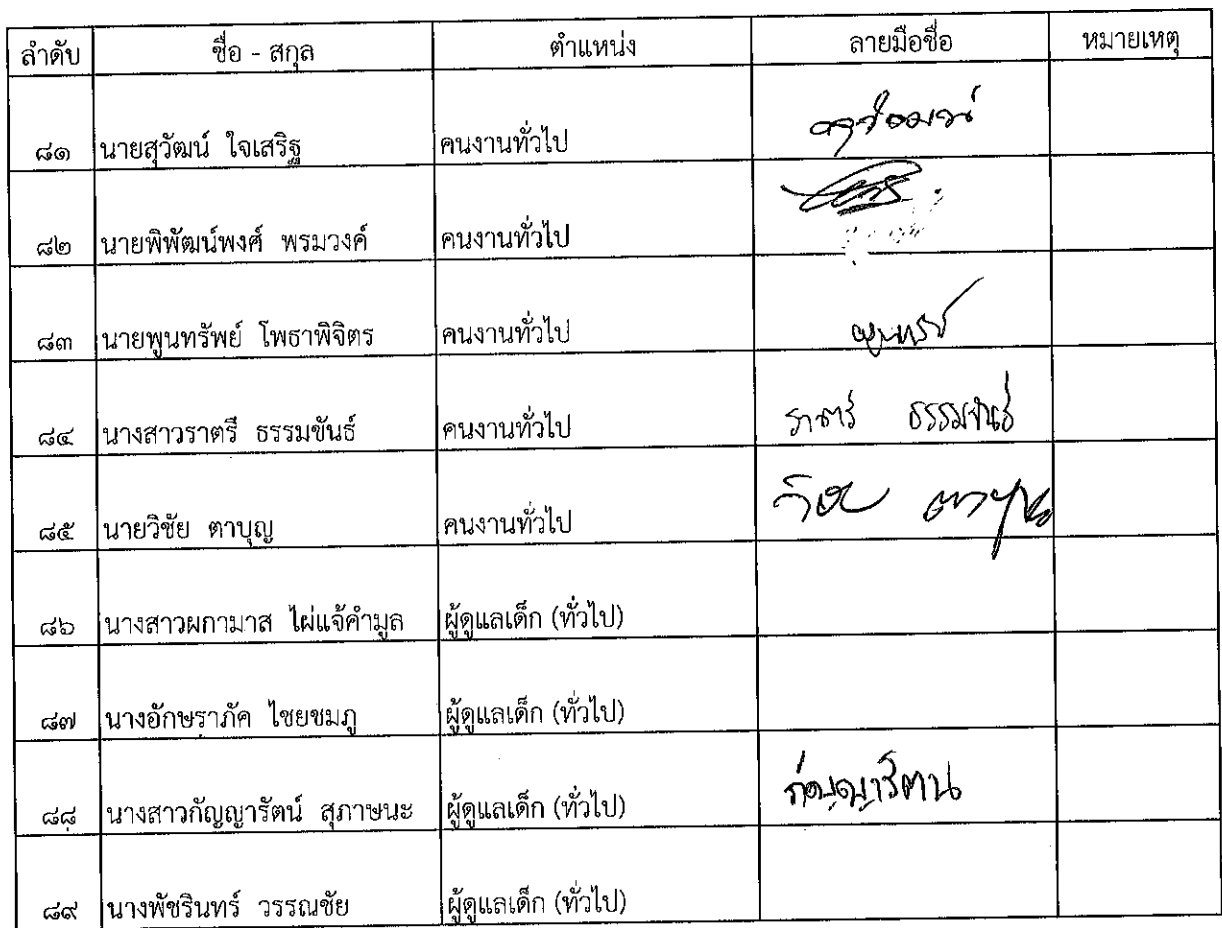 ลำดับ ชื่อ - สกุล ตำแหน่ง ลายมือชื่อ หมายเหตุ
๘๑ นายสุวัฒน์ ใจเสริฐ คนงานทั่วไป
๘๒ นายพิพัฒน์พงศ์ พรมวงค์ คนงานทั่วไป
๘๓ นายพูนทรัพย์ โพธาพิจิตร คนงานทั่วไป พูนทรัพย์
๘๔ นางสาวราตรี ธรรมขันธ์ คนงานทั่วไป ราตรี ธรรมขันธ์
๘๕ นายวิชัย ตาบุญ คนงานทั่วไป วิชัย ตาบุญ
๘๖ นางสาวผกามาส ไผ่แจ้คำมูล ผู้ดูแลเด็ก (ทั่วไป)
๘๗ นางอักษราภัค ไชยชมภู ผู้ดูแลเด็ก (ทั่วไป)
๘๘ นางสาวกัญญารัตน์ สุภาษนะ ผู้ดูแลเด็ก (ทั่วไป) กัญญารัตน์
๘๙ นางพัชรินทร์ วรรณชัย ผู้ดูแลเด็ก (ทั่วไป)